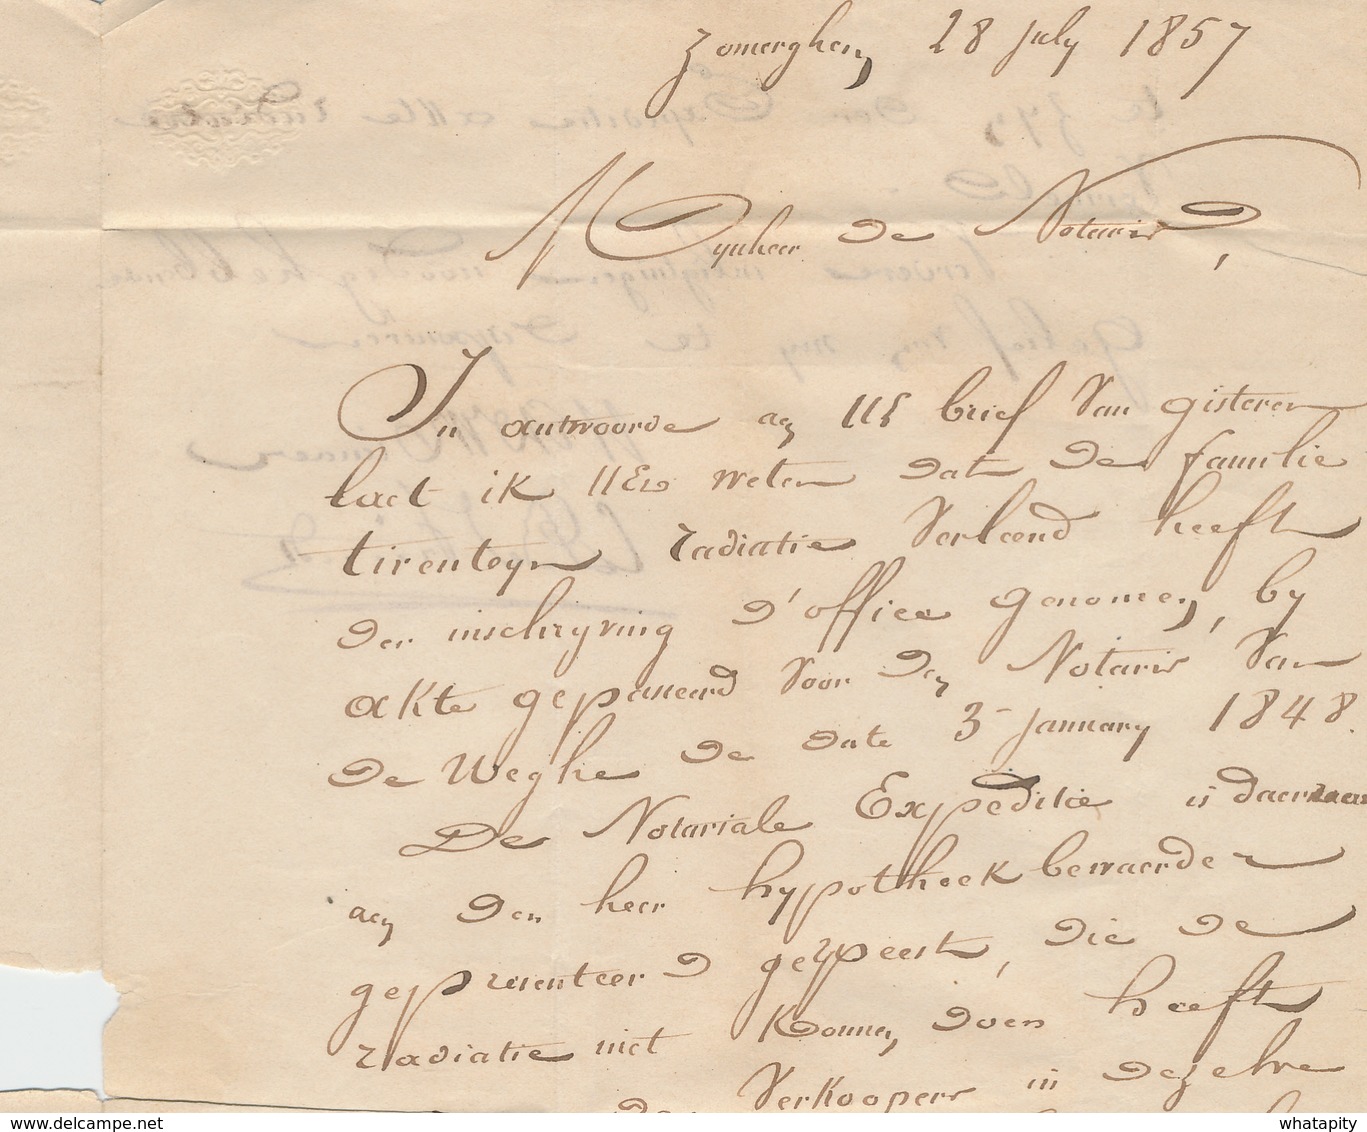 Zomerghem 28 july 1857
Mynheer de Notaris,
In antwoorde aen UE brief van gisteren
laet ik UEd weten dat de familie
tirenteyn radiatie verleend heeft
der inschryving d'office genomen, by
akte gepasseerd voor den Notaris Van
de Weghe de date 3 january 1848.
De Notariale Expéditie is daernaer
aen den heer hypotheekbewaerder
gepresenteerd geweest, die de
radiatie niet konnen doen heeft
verkoopers in dezelve
www.delcampe.net
whatapity